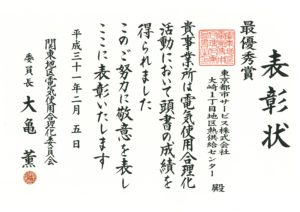 表彰状
最優秀賞
東京都市サービス株式会社
大崎1丁目地区熱供給センター 殿
貴事業所は電気使用合理化
活動において頭書の成績を
得られました
このご努力に敬意を表し
ここに表彰いたします
平成三十一年二月五日
関東地区電気使用合理化委員会
委員長 大亀 薫